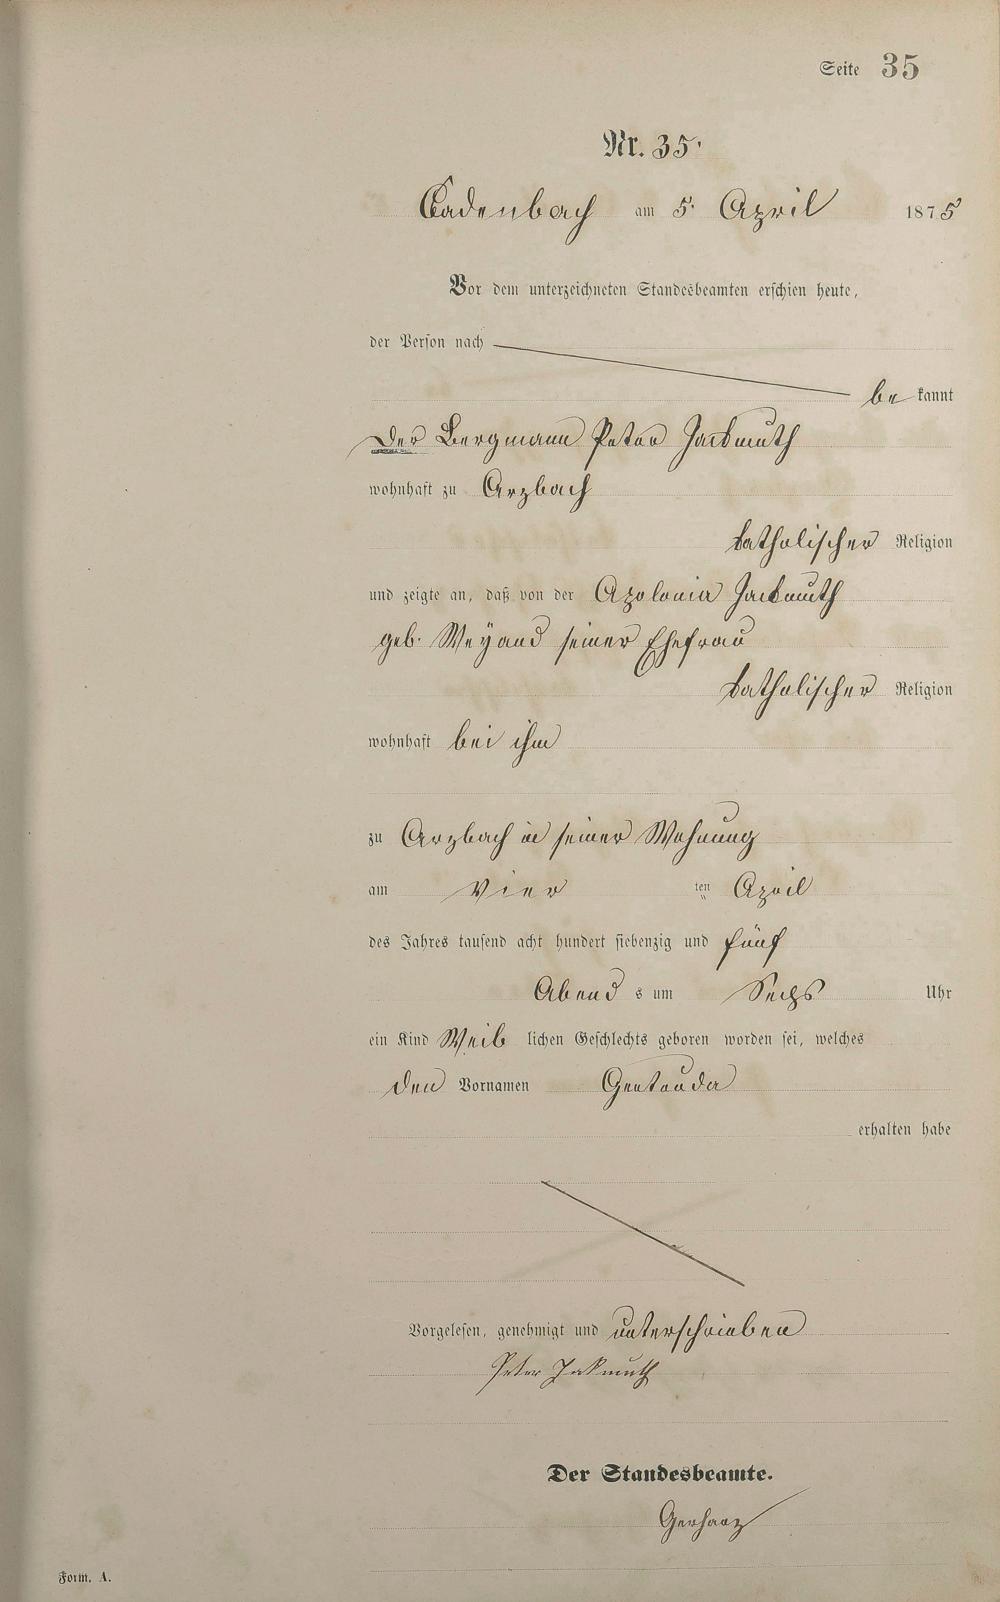 Seite 35
Nr. 35.
Cadenbach am 5. April 1875
Vor dem unterzeichneten Standesbeamten erschien heute,
der Person nach
be kannt
Der Bergmann Peter Jackmuth
wohnhaft zu Arzbach
katholischer Religion
und zeigte an, daß von der Apolonia Jackmuth
geb. Weyand seiner Ehefrau
katholischer Religion
wohnhaft bei ihm
zu Arzbach in seiner Wohnung
am Vier ten April
des Jahres tausend acht hundert siebenzig und fünf
Abend s um Sechs Uhr
ein Kind Weib lichen Geschlechts geboren worden sei, welches
den Vornamen Gertruda
erhalten habe
Vorgelesen, genehmigt und unterschrieben
Peter Jakmuth
Der Standesbeamte.
Gerharz
Form. A.